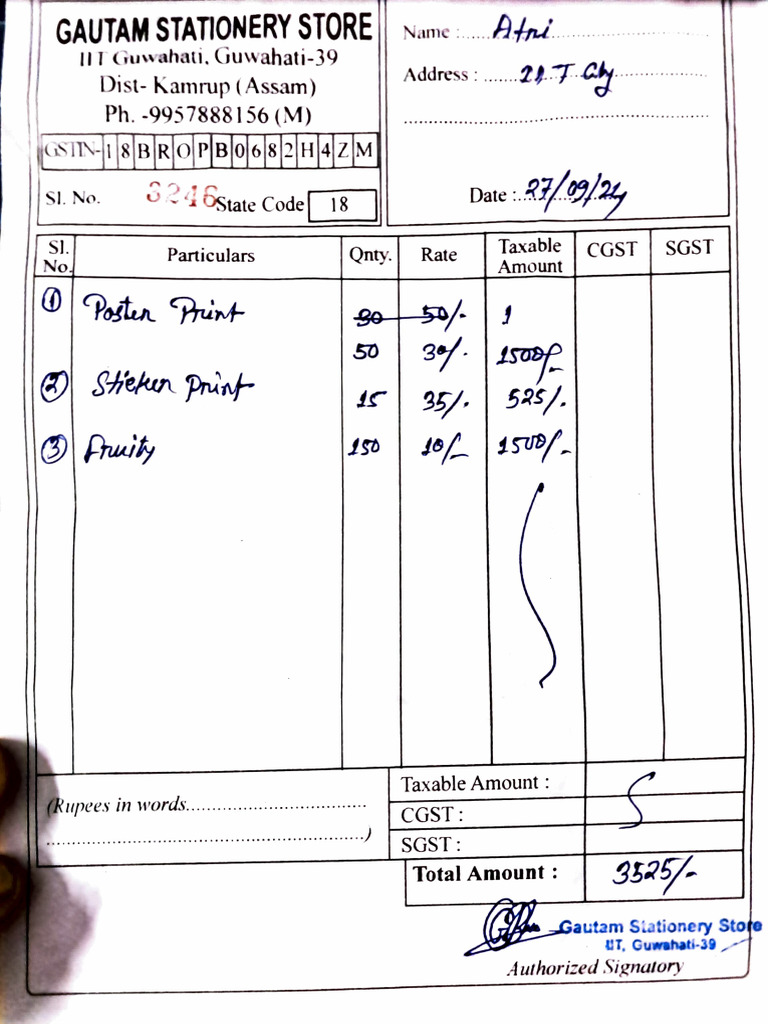 GAUTAM STATIONERY STORE
IIT Guwahati, Guwahati-39
Dist- Kamrup (Assam)
Ph. -9957888156 (M)
GSTIN- 18BROPB0682H4ZM
Sl. No. 3246 State Code 18
Name : Atri
Address :
Date : 27/09/24
Sl. No. Particulars Qnty. Rate Taxable Amount CGST SGST
① Poster Print 30 50/- 1
50 30/- 1500/-
② Sticker Print 15 35/- 525/-
③ Fruity 150 10/- 1500/-
(Rupees in words.............................
.............................)
Taxable Amount :
CGST :
SGST :
Total Amount : 3525/-
Gautam Stationery Store
IIT, Guwahati-39
Authorized Signatory